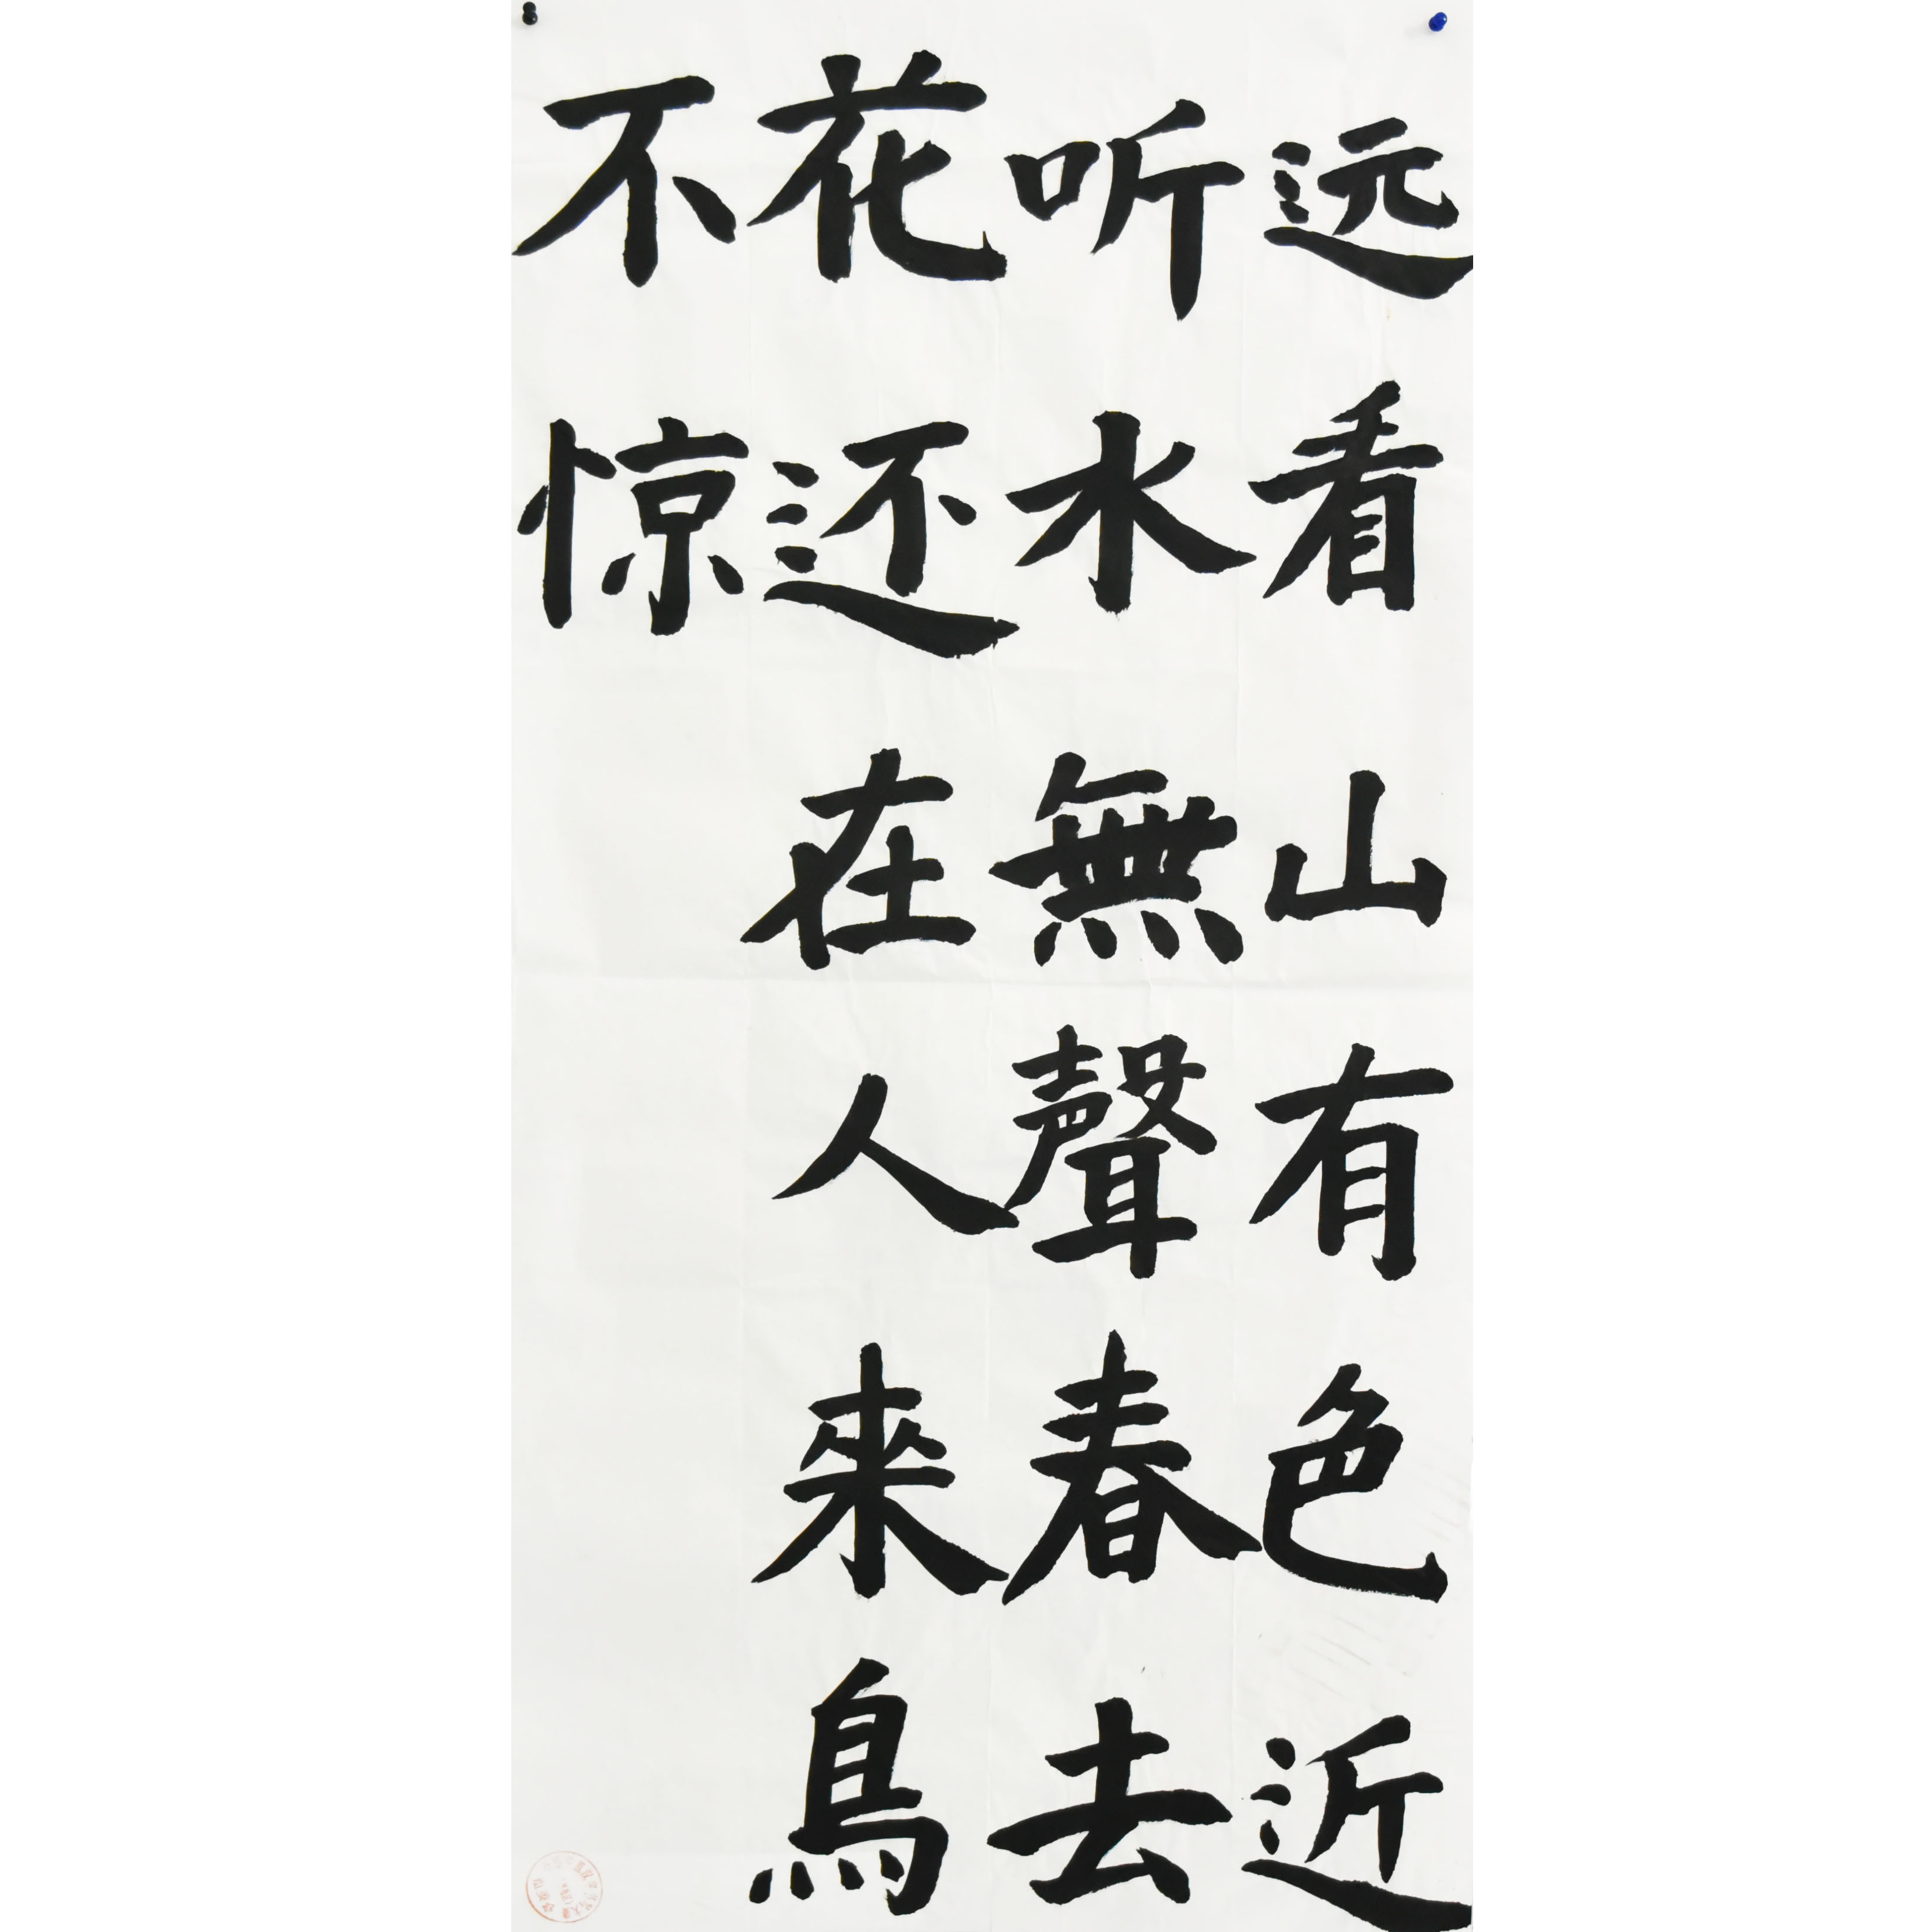 远看山有色近
听水無聲春去
花还在人來鳥
不惊